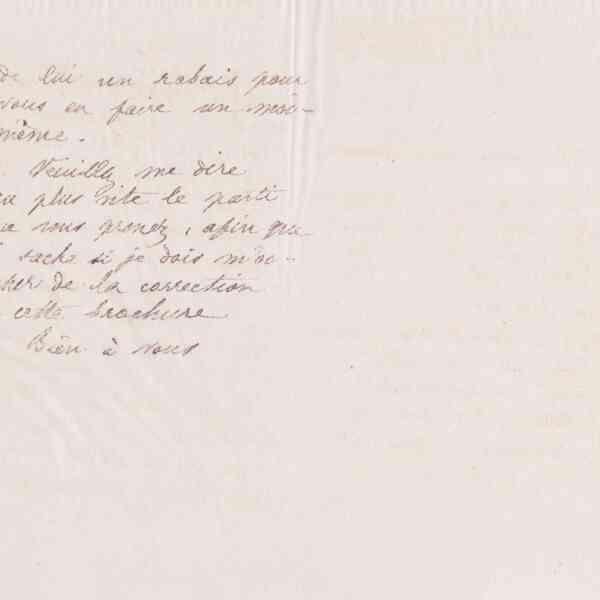 de lui un rabais pour
vous en faire un moi-
même.
Veuillez me dire
au plus vite le parti
que vous prenez, afin que
sache si je dois m'oc-
cuper de la correction
cette brochure
Bien à vous